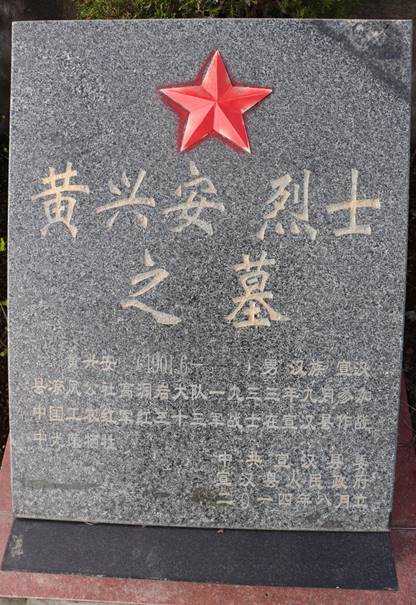 黄兴安 烈士
之墓
黄兴安 (1901.6— ) 男 汉族 宣汉
县凉风公社高洞岩大队一九三三年九月参加
中国工农红军红三十三军战士在宣汉县作战
中光荣牺牲
中共宣汉县委
宣汉县人民政府
二〇一四年八月立